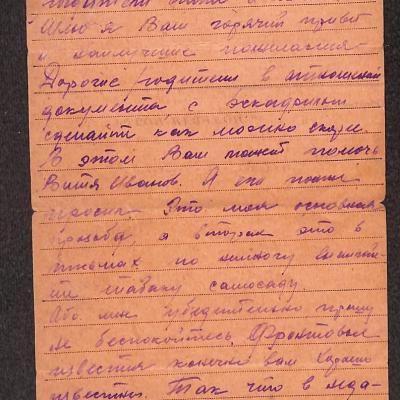 Шлю я Вам горячий привет
и наилучшие пожелания.
Дорогие родители в отношении
документа с эскадрильи
сделайте как можно скорее.
В этом Вам может помочь
Витя Иванов. Я его тоже
просил. Это моя основная
просьба, а вторая это в
письмах по немногу
самосаду.
Обо мне убедительно прошу
не беспокойтесь, Фронтовые
известия конечно вам хорошо
известны. Так что в неда-